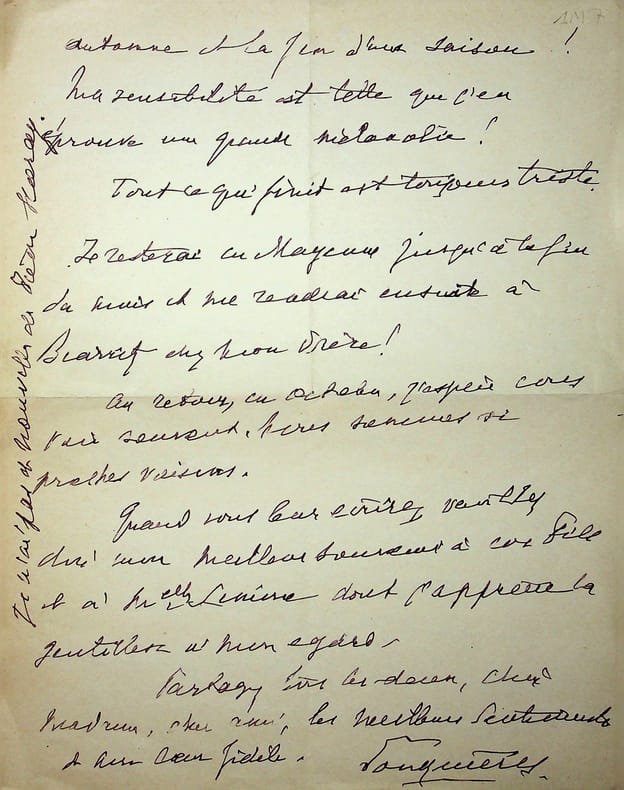 1M7
automne et la fin d'une saison !
Ma sensibilité est telle que j'en
éprouve une grande mélancolie !
Tout ce qui finit est toujours triste.
Je resterai en Mayenne jusqu'à la fin
du mois et me rendrai ensuite à
Biarritz chez mon frère !
Au retour, en octobre, j'espère vous
voir souvent. Nous sommes si
proches voisins.
Quand vous leur écrirez veuillez
dire mon meilleur souvenir à vos
et à Melle dont j'apprécie la
gentillesse à mon égard.
Partagez tous les deux, chère
Madame, cher ami, les meilleurs sentiments
de mon cœur fidèle. Fouquières.
Je n'ai pas de nouvelles de